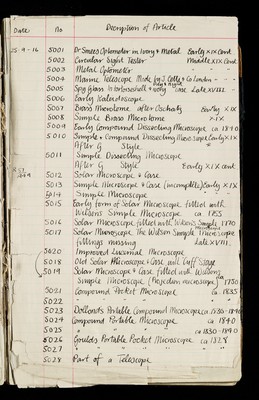 Date No Description of Article
25-9-16 5001 Dr Smees Optometer in Ivory & Metal Early XIX Cent
5002 Circular Sight Tester Middle XIX Cent
5003 Metal Optometer - -
5004 Marine Telescope Made by J. & Co London - -
5005 Spy Glass in tortoiseshell & Ivory Case Late XVIII -
5006 Early Kaleidoscope
5007 Brass Microtome after Oschatz Early XIX
5008 Simple Brass Microtome - XIX
5009 Early Compound Dissecting Microscope ca 1840
5010 Simple & Compound Dissecting Microscope Early XIX
After G Style
5011 Simple Dissecting Microscope
After G Style Early XIX Cent
5012 Solar Microscope & Case
5013 Simple Microscope & Case (incomplete) Early XIX
5014 Simple Microscope
5015 Early form of Solar Microscope fitted with
Wilsons Simple Microscope ca 1755
5016 Solar Microscope fitted with Wilsons Simple 1770
5017 Solar Microscope. The Wilson Simple Microscope
fittings missing Late XVIII.
5020 Improved Lucernal Microscope
5018 Old Solar Microscope & Case with Cuff Stage
5019 Solar Microscope & Case fitted with Wilsons
Simple Microscope (Projection microscope) ca 1750
5021 Compound Pocket Microscope ca. 1835
5022 " " "
5023 Dollonds Portable Compound Microscope ca 1830-1840
5024 Compound Portable Microscope ca 1840
5025 " " " ca 1830-1840
5026 Goulds Portable Pocket Microscope ca 1828
5027 " " " "
5028 Part of a Telescope